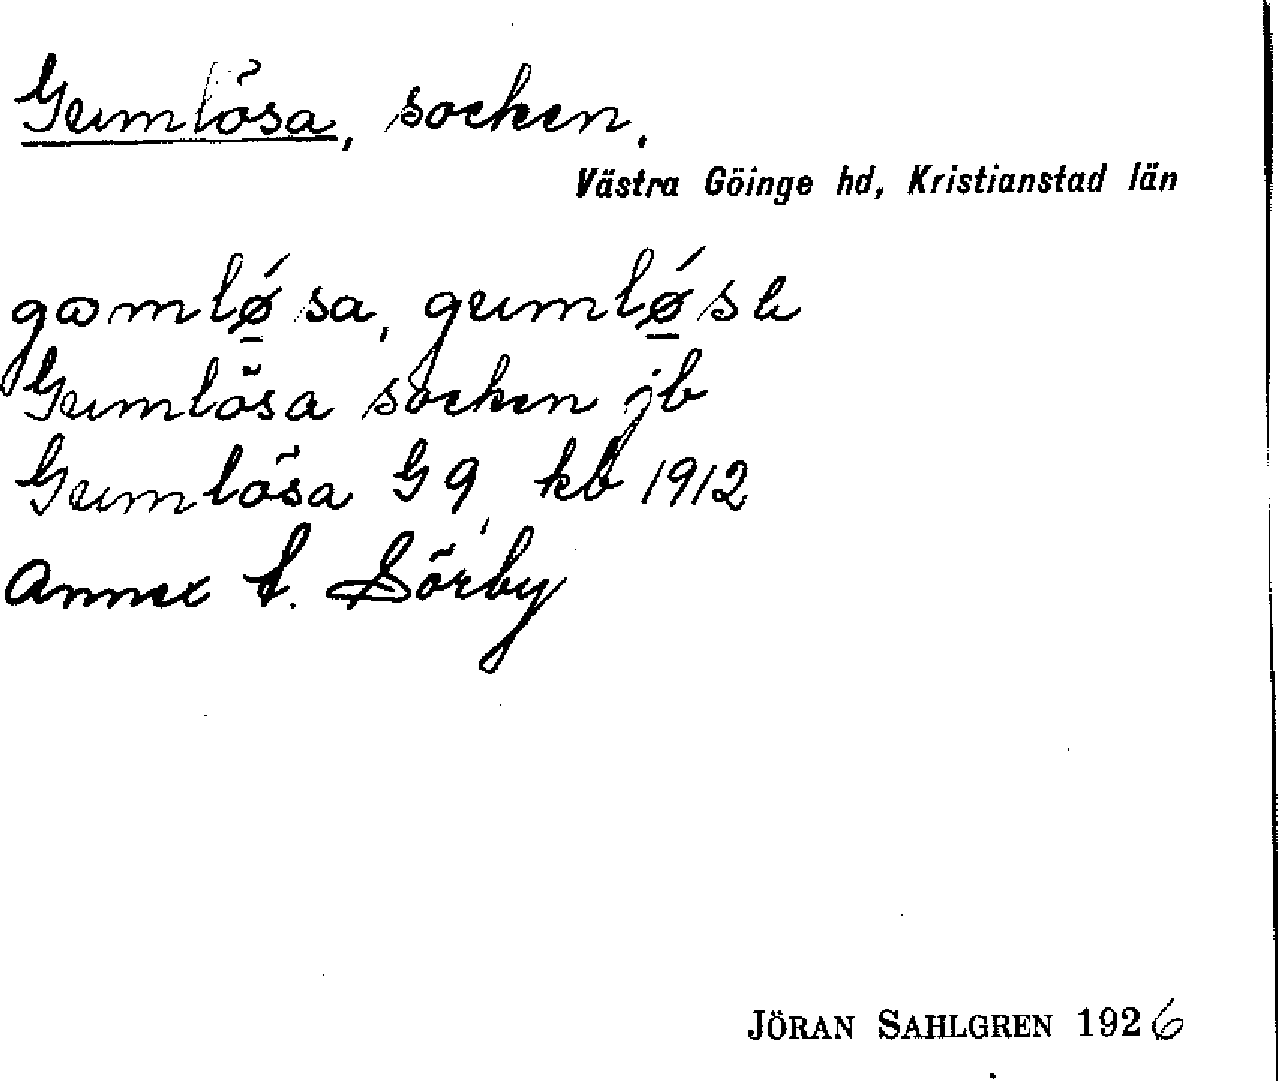 Gumlösa, socken.
Västra Göinge hd, Kristianstad län
gωmlǿ̱sa, gumlǿ̱sɐ
Gumlösa socken jb
Gumlösa G 9, kb 1912
Annex t. Sörby
JÖRAN SAHLGREN 1926